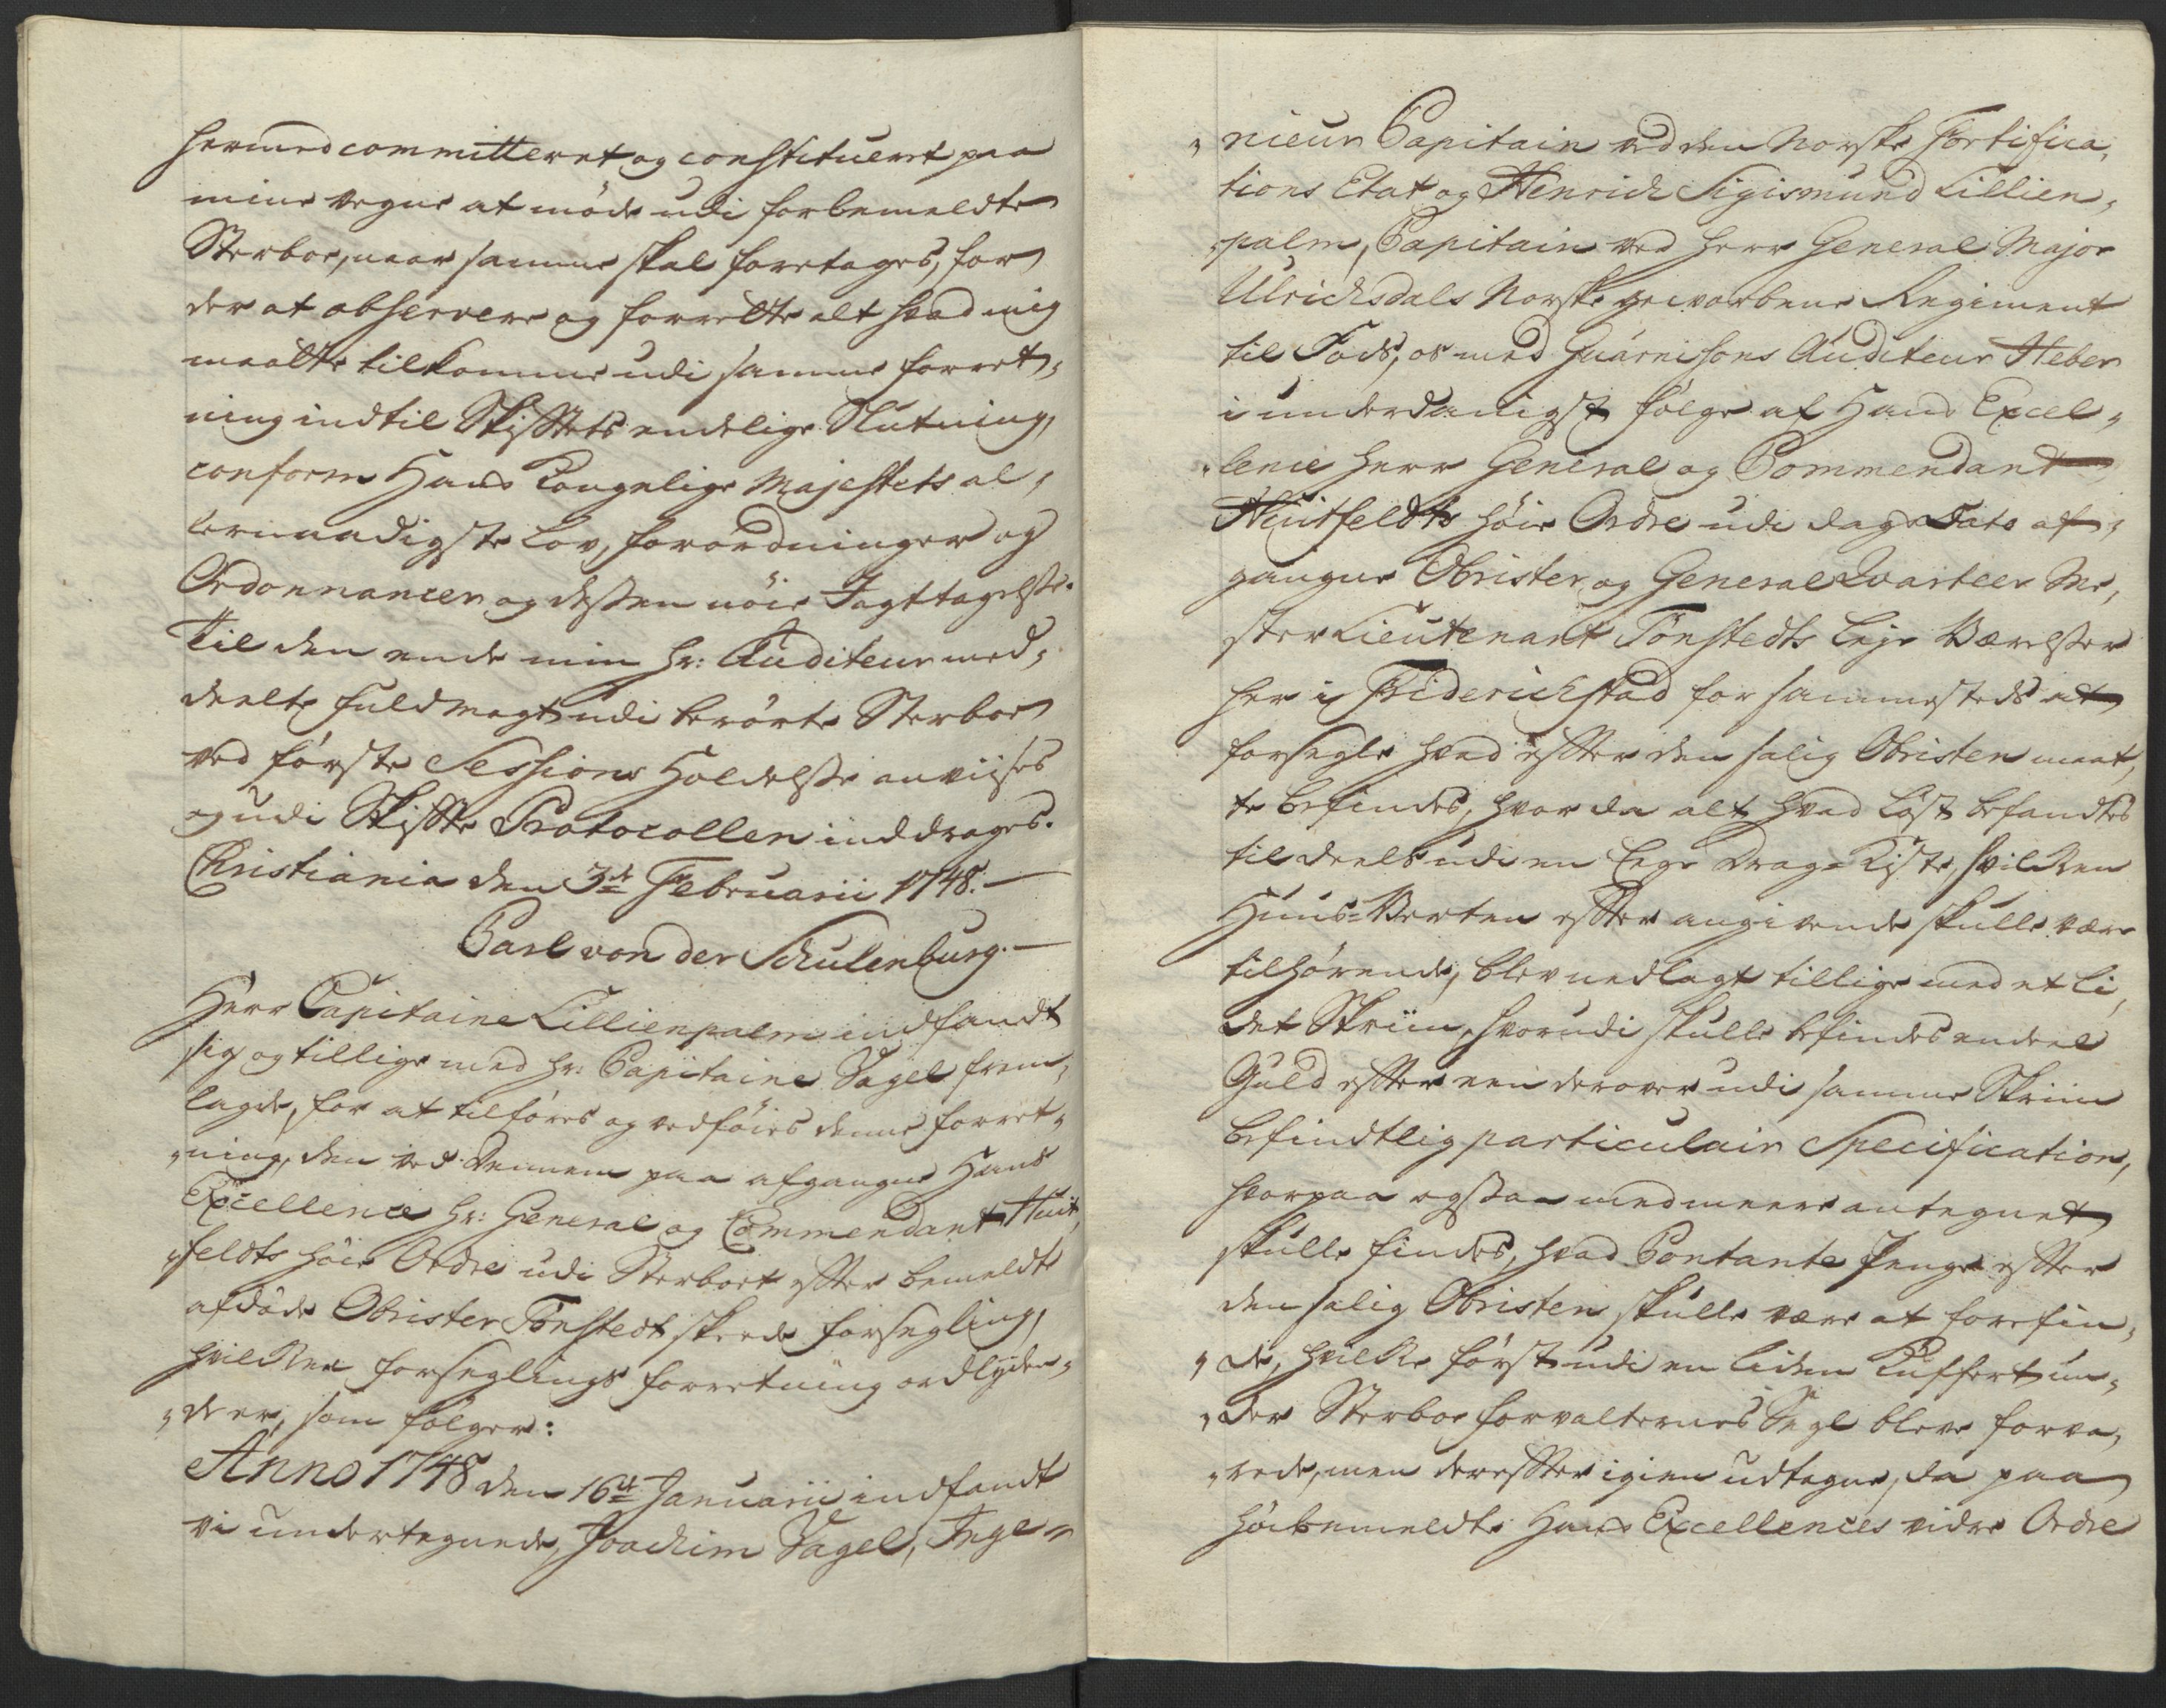 hermed committeret og constitueret paa
mine vegne at møde udi forbemeldte
Sterboe, naar samme skal foretages, for
der at observere og forrette alt hvad mig
maatte tilkomme udi samme forret,
ning indtil Skifftets endelige Slutning,
conform Hans Kongelige Majestets al,
lernaadigste Lov, forordninger og
Ordonnancer og dessen nöie Jagttagelsse.
Til den ende min Hr: Auditeur med,
deelte fuldmagt udi berörte Sterboe
ved förste Sessions Holdelsse anviises
og udi Skiffte Protocollen inddrages.
Christiania den 3de Februarii 1748. —
Carl von der Schulenburg. —
Herr Capitaine Lillienpalm indfandt
sig og tillige med Hr: Capitaine Sagel frem,
lagde, for at tilföres og vedföies denne forret,
„ning, den ved Dennem paa afgangne Hans
Excellence Hr: General og Commendant Huit,
„feldts höie Ordre udi Sterboet effter bemeldte
afdöde Obrister Tönstedt skeede forsegling,
hvilken forseglings forretning ordlyden,
„de er, som fölger:
Anno 1748 den 16de Januarii indfandt
vi undertegnede, Joachim Sagel, Inge„
„nieur Capitain ved den Norske Fortifica,
tions Etat og Henrich Sigismund Lillien,
„palm, Capitain ved Herr General Major
Ulrichsdals Norske geworbene Regiment
til Fods, os med Guarnisons Auditeur Heber
i underdanigst fölge af Hans Excel„
„lence Herr General og Commendant
Huitfeldts höie Ordre udi dags Dato af,
gangne Obrister og General Qvarteer Me,
ster Lieutenant Tönstedts Leje Værelsser
her i Friderichstad for sammesteds at
forsegle hvad effter den salig Obristen maat,
te befindes, hvor da alt hvad Löst befandtes
til deels udi en Lege Drag-Kiste, hvilken
Huus-Verten effter angivende skulle være
tilhörende, blev nedlagt tillige med et Li,
det Skriin, hvorudi skulle befindes endeel
Guld effter een derover udi samme Skriin
befindtlig particulair Specification,
hvorpaa ogsaa med meere antegnet
skulle findes, hvad Contante Penge effter
den salig Obristen skulle være at forefin,
„de, hvilke först udi en liden Kuffert un„
„der Sterboe forvalternes Segl blev forva,
„rede, men dereffter igien udtagne, da paa
höibemeldte Hans Excellences vidre Ordre